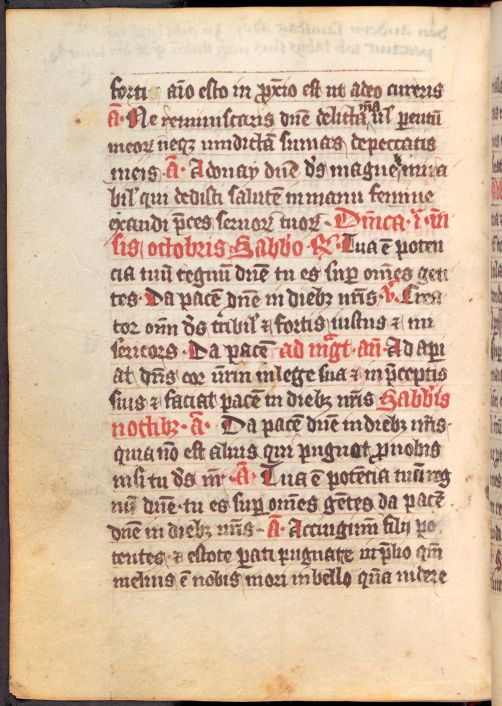 forti aīo esto in ꝓxīo est ut a deo cureris
A̅· Ne reminiscaris dn̄e delicta m̄a ul̄ parentū
meoꝝ neqꝫ uindictā sumas de peccatis
meis · A̅· Adonay dn̄e d̄s magne et mira
bil̕ qui dedisti salutē in manu femine
exaudi p̄ces seruoꝝ tuoꝝ · Dn̄ica · ı̄· m̄
sis octobris Sabb̄o ℟· Tua ē poten
cia tuū regnū dn̄e tu es suꝑ om̄es gen
tes · Da pacē dn̄e in diebꝫ nr̄is · ℣· Crea
tor om̄ d̄s t̄ribil̕ ⁊ fortis iustus ⁊ mi
sericors · Da pacē ad mg̅t · an̄· Ad api
at dn̄s cor ūrm in lege sua ⁊ in p̄ceptis
suis ⁊ faciat pacē in diebꝫ nr̄is Sabb̄is
noctibꝫ · A̅· Da pacē dn̄e in diebꝫ nr̄is ·
quia nō est alius qui pugnat ꝓ nobis
nisi tu d̄s nr̄ · A̅· Tua ē potēcia tuū reg
nū dn̄e · tu es suꝑ om̄es gētes da pacē
dn̄e in diebꝫ nr̄is · A̅· Accingim̄ filij po
tentes · ⁊ estote ꝑati pugnare in p̄lio qm̄
melius ē nobis mori in bello qͣm uidere